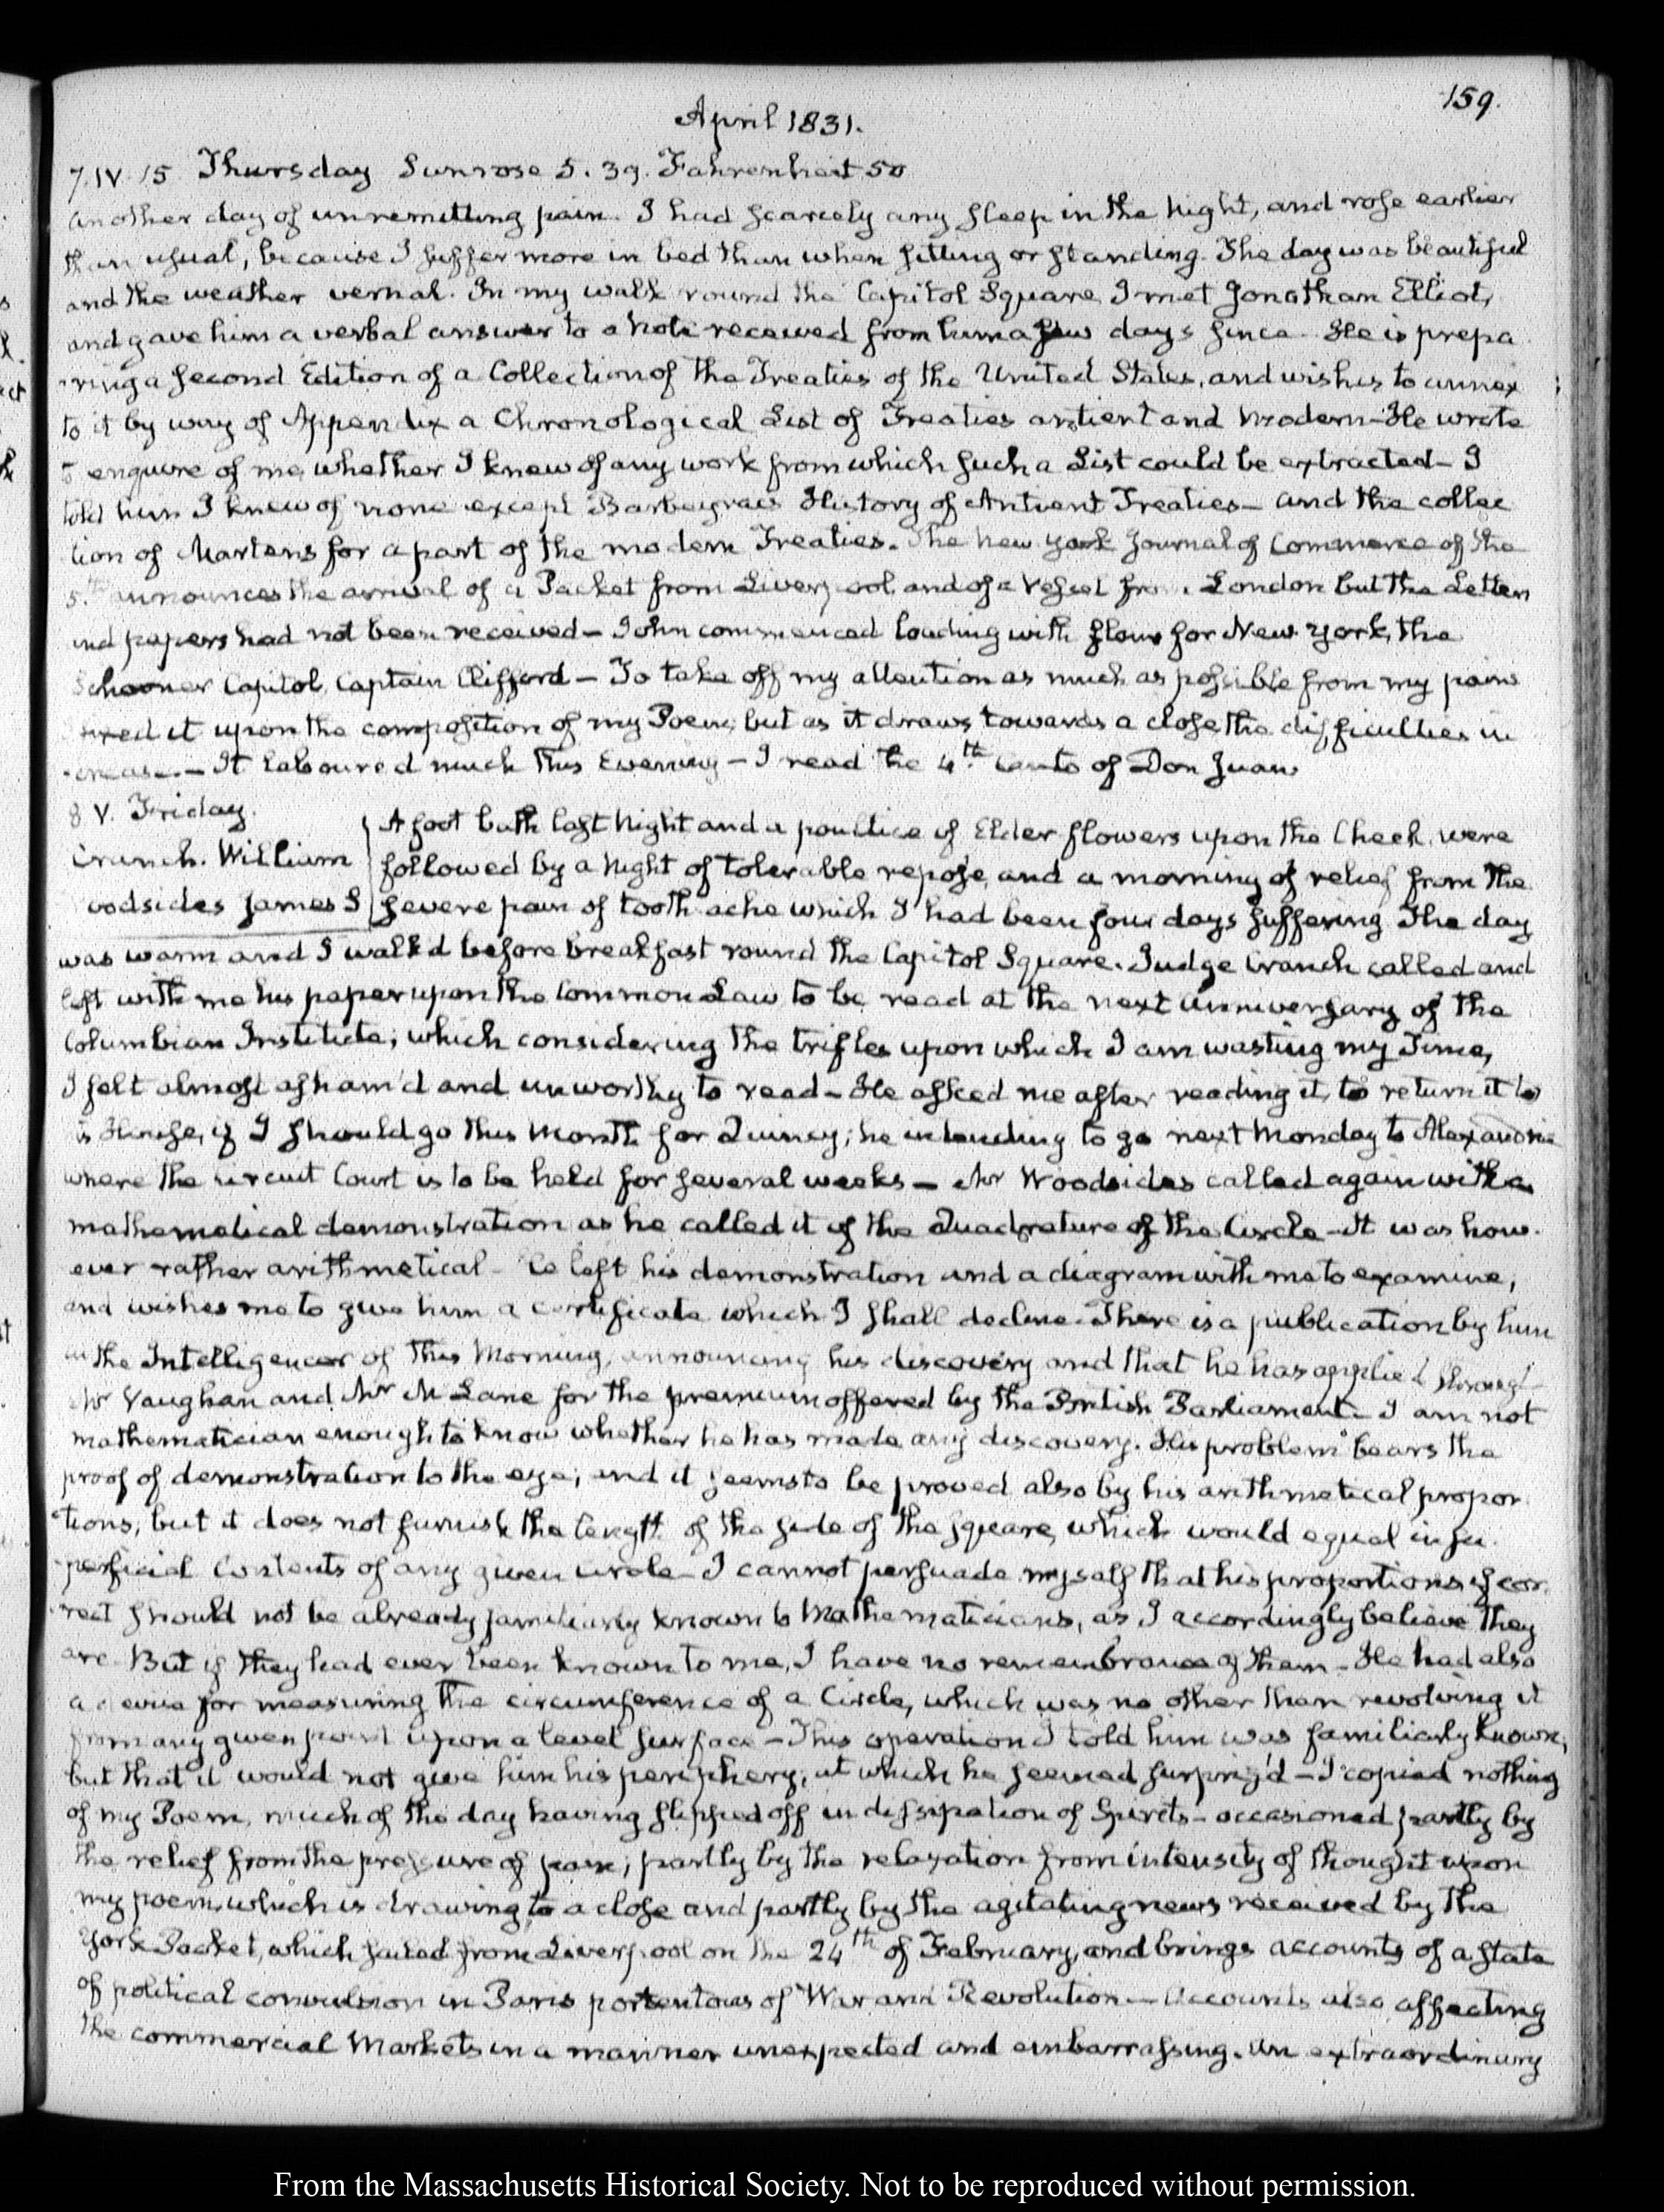 159.
April 1831.
7. IV. 15 Thursday Sun rose 5. 39. Fahrenheit 50
another day of unremitting pain. I had scarcely any sleep in the Night, and rose earlier
than usual, because I suffer more in bed than when sitting or standing. The day was beautiful
and the weather vernal. In my walk round the Capitol Square, I met Jonathan Elliot,
and gave him a verbal answer to a Note received from him a few days since. He is prepa
ring a second Edition of a Collection of the Treaties of the United States, and wishes to annex
to it by way of Appendix a Chronological List of Treaties antient and modern—He wrote
to enquire of me, whether I knew of any work from which such a List could be extracted—I
told him I knew of none except Barbeyrac's History of Antient Treaties—and the collec
tion of Martens for a part of the modern Treaties. The New York Journal of Commerce of the
5.th announces the arrival of a Packet from Liverpool, and of a vessel from London but the Letters
and papers had not been received—John commenced loading with flour for New York, the
Schooner Capitol, Captain Clifford—To take off my attention as much as possible from my pain
it upon the composition of my Poem; but as it draws towards a close the difficulties in
crease.—It laboured much this Evening—I read the 4.th Canto of Don Juan.
8 V. Friday.
Cranch. William
oodsides James S
A foot bath last Night and a poultice of Elder flowers upon the Cheek, were
followed by a Night of tolerable repose, and a morning of relief from the
severe pain of tooth ache which I had been four days suffering The day
was warm and I walk'd before breakfast round the Capitol Square. Judge Cranch called and
left with me his paper upon the Common Law to be read at the next anniversary of the
Columbian Institute; which considering the trifles upon which I am wasting my Time,
I felt almost asham'd and unworthy to read—He asked me after reading it, to return it to
is House, if I should go this Month for Quincy; he intending to go next Monday to Alexandria
where the circuit Court is to be held for several weeks—Mr Woodsides called again with a
mathematical demonstration as he called it of the Quadrature of the Circle—It was how-
ever rather arithmetical—he left his demonstration and a diagram with me to examine,
and wishes me to give him a certificate which I shall decline. There is a publication by him
in the Intelligencer of this Morning, announcing his discovery and that he has applied through
Mr Vaughan and Mr McLane for the premium offered by the British Parliament—I am not
mathematician enough to know whether he has made any discovery. His problem bears the
proof of demonstration to the eye; and it seems to be proved also by his arithmetical propor
tions, but it does not furnish the length of the side of the square, which would equal in su-
perficial Contents of any given circle—I cannot persuade myself that his proportions if cor-
rect should not be already familiarly known to Mathematicians, as I accordingly believe they
are. But if they had ever been known to me, I have no remembrance of them—He had also
a device for measuring the circumference of a Circle, which was no other than revolving it
from any given point upon a level surface—This operation I told him was familiarly known,
but that it would not give him his periphery, at which he seemed surpriz'd—I copied nothing
of my Poem, much of the day having slipped off in dissipation of Spirits—occasioned partly by
the relief from the pressure of pain; partly by the relaxation from intensity of thought upon
my poem, which is drawing to a close and partly by the agitating news received by the
York Packet, which sailed from Liverpool on the 24th of February, and brings accounts of a state
of political convulsion in Paris portentous of War and Revolution—Accounts also affecting
the commercial Markets in a manner unexpected and embarrassing. An extraordinary
From the Massachusetts Historical Society. Not to be reproduced without permission.